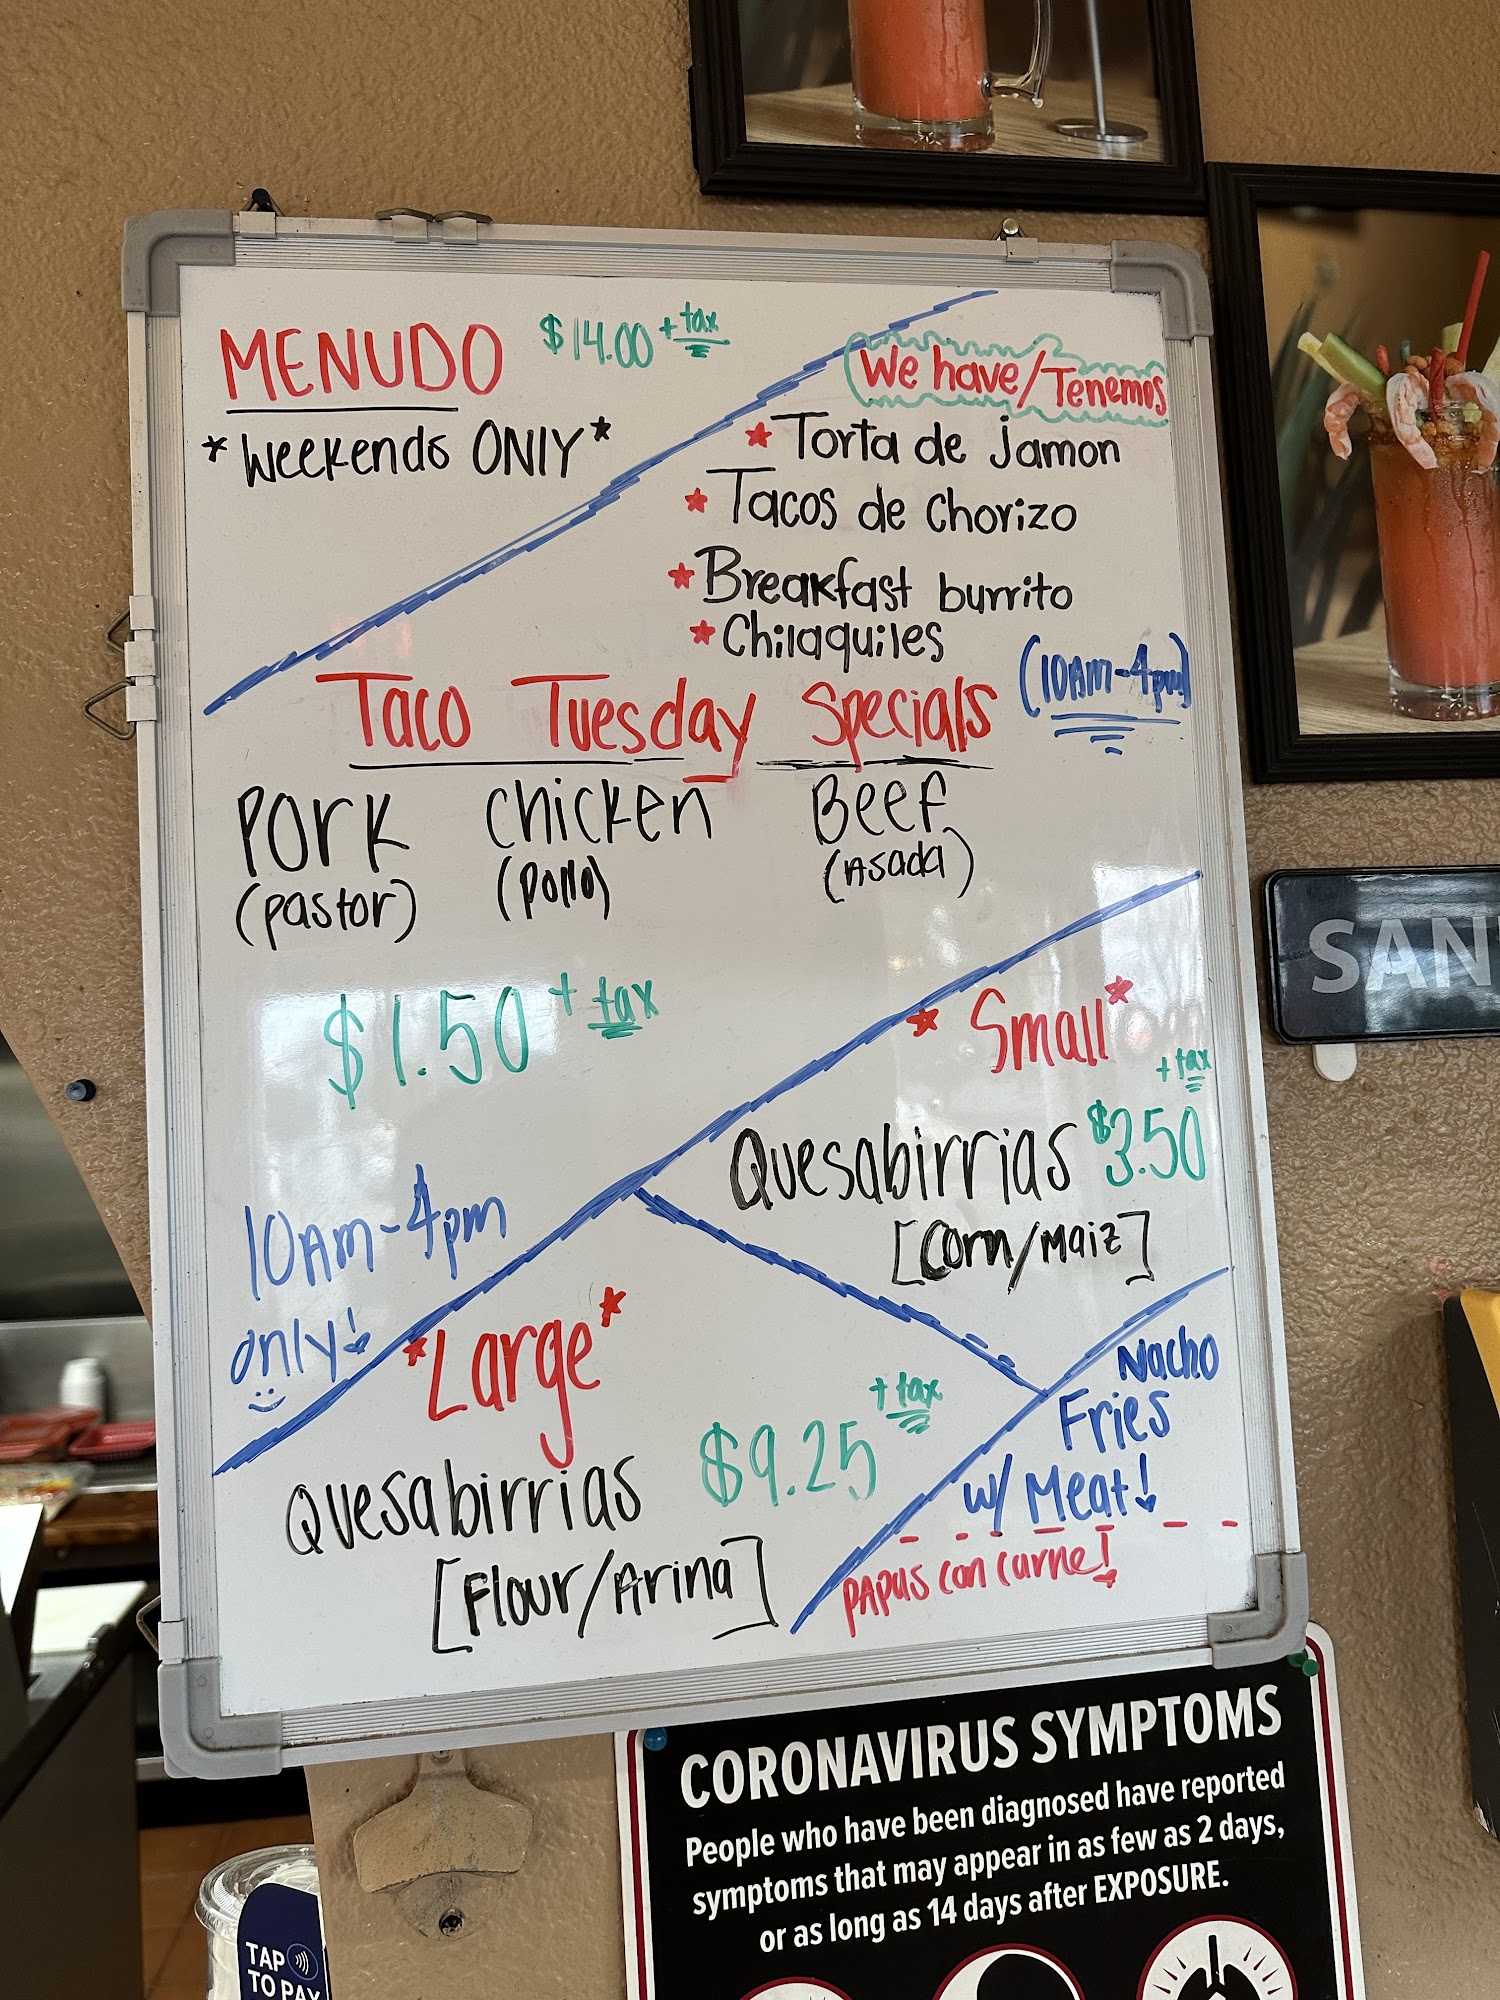 MENUDO $14.00 + tax
*Weekends ONLY*
We have/Tenemos
* Torta de jamon
* Tacos de Chorizo
* Breakfast burrito
* Chilaquiles
Taco Tuesday Specials (10AM-4pm)
Pork Chicken Beef
(pastor) (pollo) (Asada)
$1.50 + tax
10AM-4pm
only!
* Small *
+ tax
Quesabirrias $3.50
[Corn/Maiz]
*Large*
+ tax
Quesabirrias $9.25
[Flour/Arina]
Nacho
Fries
w/ Meat!
papas con carne!
SAN
CORONAVIRUS SYMPTOMS
People who have been diagnosed have reported
symptoms that may appear in as few as 2 days,
or as long as 14 days after EXPOSURE.
TAP
TO PAY